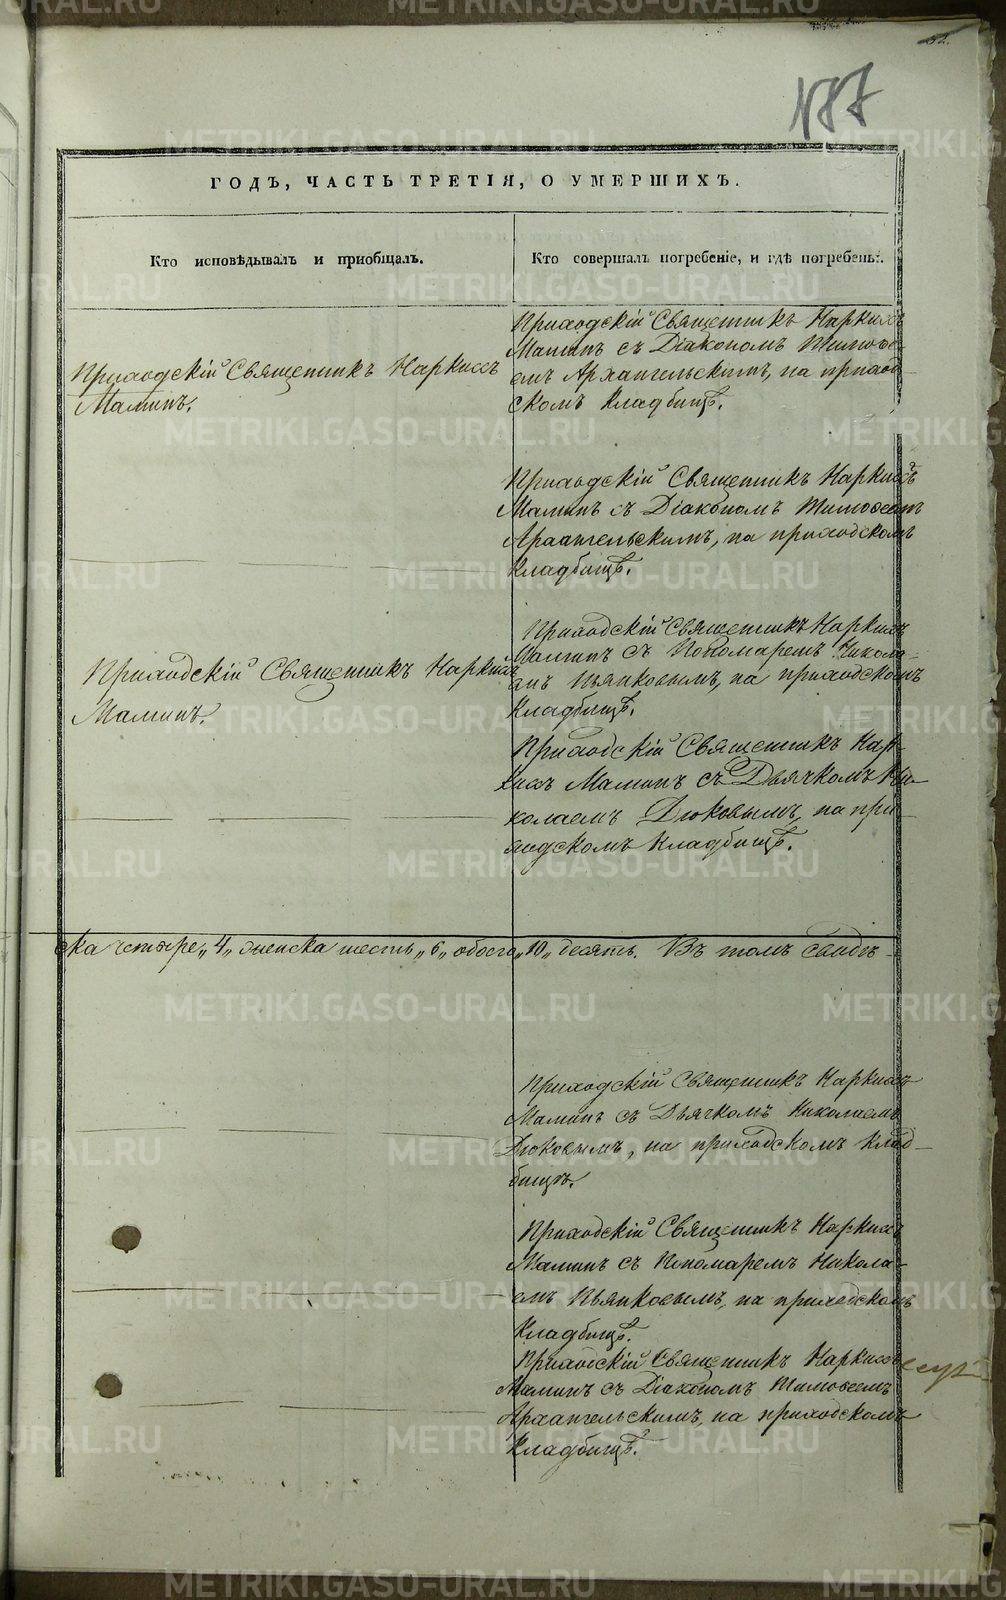 52.
187
ГОДЪ, ЧАСТЬ ТРЕТІЯ, О УМЕРШИХЪ.
Кто исповѣдывалъ и приобщалъ.
Кто совершалъ погребеніе, и гдѣ погребены.
Приходскій Священникъ Наркиссъ
Маминъ.
Приходскій Священникъ Наркиссъ
Маминъ съ Діакономъ Тимоѳе-
емъ Архангельскимъ, на приход-
скомъ Кладбищѣ.
Приходскій Священникъ Наркиссъ
Маминъ съ Діакономъ Тимоѳеемъ
Архангельскимъ, на приходскомъ
Кладбищѣ.
Приходскій Священникъ Наркиссъ
Маминъ.
Приходскій Священникъ Наркиссъ
Маминъ съ Пономаремъ Никола-
емъ Пьянковымъ, на приходскомъ
Кладбищѣ.
Приходскій Священникъ Нар-
киссъ Маминъ съ Дьячкомъ Ни-
колаемъ Дюковымъ, на при-
ходскомъ Кладбищѣ.
ска четыре „4„ женска шесть „6„ обоего „10„ десять. Въ томъ свидѣ-
Приходскій Священникъ Наркиссъ
Маминъ съ Дьячкомъ Николаемъ
Дюковымъ, на приходскомъ Клад-
бищѣ.
Приходскій Священникъ Наркиссъ
Маминъ съ Пономаремъ Никола-
емъ Пьянковымъ, на приходскомъ
Кладбищѣ.
Приходскій Священникъ Наркиссъ
Маминъ съ Діакономъ Тимоѳеемъ
Архангельскимъ, на приходскомъ
Кладбищѣ.
METRIKI.GASO-URAL.RU